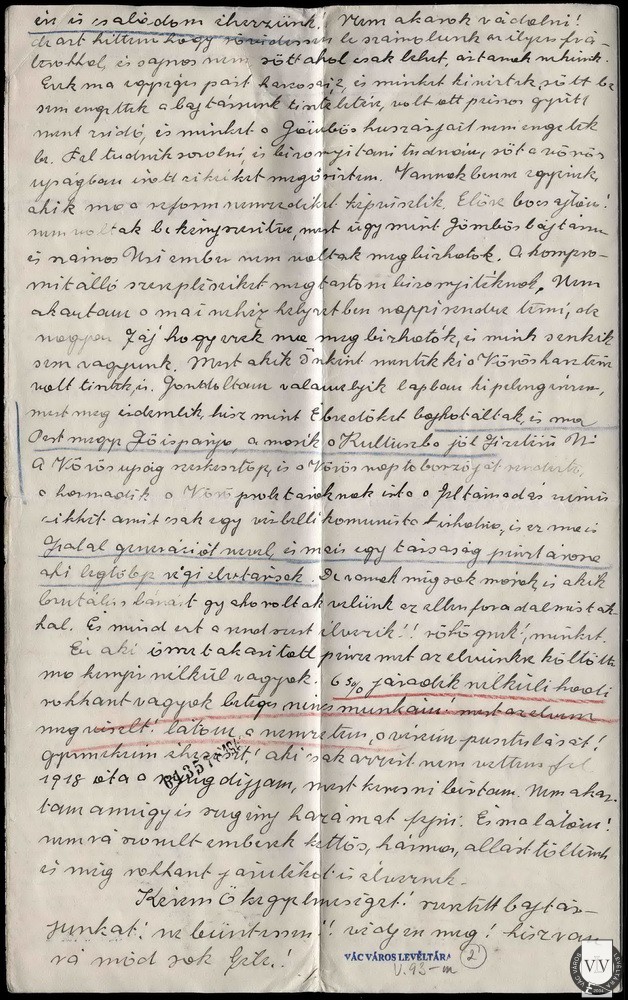 én is családom éhezünk. Nem akarok vádolni!
de azt hittem hogy rövidesen leszámolunk az ilyen frá-
terokkal, és sajnos nem, sőtt ahol csak lehet, ártanak nekünk.
Ezek ma egységes párt harcosai, és minket kinéztek, sőtt be
sem engedték a bajtársunk tiszteletére, volt ott piros gyűlt
ment zsidó, és minket a Gömbös huszárjait nem engedtek
be. Fel tudnik sorolni, és bizonyitani tudnám, sőt a vörös
ujságban irott cikeiket megőriztem. Vannak benn egyének,
akik ma a reform nemzedéket képviselik. Előre bocsajtom!
nem voltak bekényszeritve, mert úgy mint Gömbös bajtársu
és számos Uri ember nem voltak megbizhatók. A kompro-
mitálló szereplésüket megtartom bizonyitéknak. Nem
akartam a mai nehéz helyzetben nappirendre tűzni, de
nagyon fáj hogy ezek ma megbizhatók, és mink senkik
sem vagyunk. Mert akik önként mentek ki a Vöröshadse
volt tisztek is. Gondoltam valamelyik lapban kipelengérezem,
mert meg érdemlik, hisz mint Ébredőket bojkotáltak, és ma
Pest megye Főispánja, a másik a Kultuszba jól fizetett
A Vörös ujság szerkesztője, és a Vörös nap toborzóját rendezte,
a harmadik a Vörös proletároknak irta a Feltámadás cimű
cikkét amit csak egy vérbelli komunista irhatna, és ez ma is
fiatal generációt nevel, és ma is egy társaság pénztárosa
aki legtöbje régi elvtársak. De vannak még sok mások is akik
brutális bánást gyakoroltak velünk az ellenforadalmistak-
kal. És mind ezt a rendszert élvezik!! röhögnek! minket.
Én aki összetakaritott pénzemet az elvünkre költötte
ma kenyér nélkül vagyok. 65% járadék nélküli hadi
rokkant vagyok beteges nincs munkám! mert az elvem
megviselt! látom, a nemzetem, a vérem pusztulását!
gyermekeim éhezését! aki csak azért nem vettem fel
1918 óta a nyugdijjam, mert keresni birtam. Nem akar-
tam amugy is szegény hazámat fejni. És ma látom!
nem rászorult emberek kettős, hármas, állást töltenek
és még rokkant járulékot is élveznek.
64357
Kérem Ő kegyelmességét! vezetett bajtár-
junkat! ne büntessen!! védjen meg! hisz van
rá mód sok féle!
VÁC VÁROS LEVÉLTÁRA
V. 93-
2
VÁC VÁROS LEVÉLTÁRA